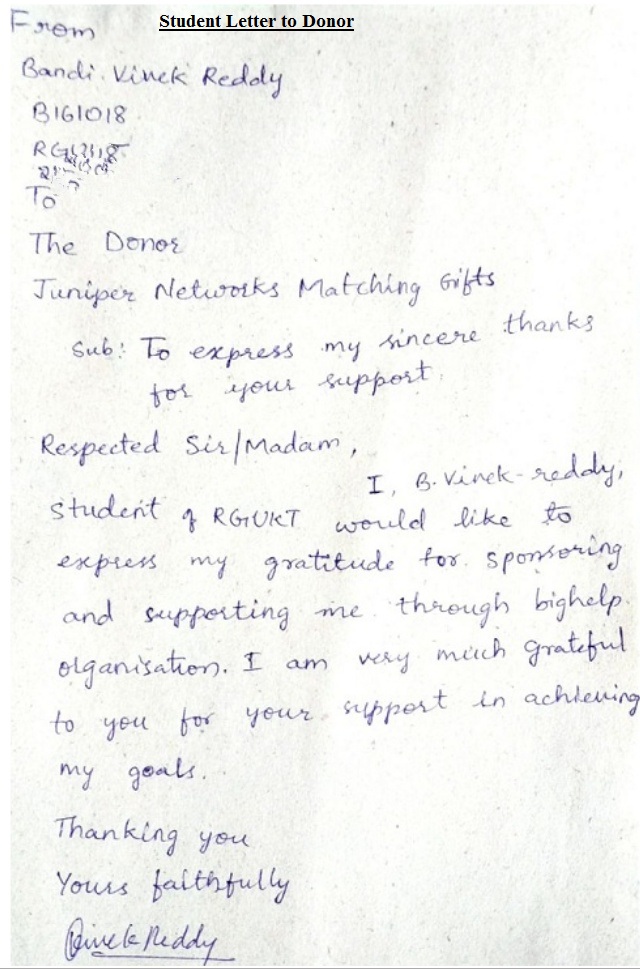 Student Letter to Donor
From
Bandi. Vivek Reddy
B161018
To
The Donor
Juniper Networks Matching Gifts
Sub: To express my sincere thanks
for your support.
Respected Sir/Madam,
I, B. Vivek-reddy,
Student of RGUKT would like to
express my gratitude for sponsoring
and supporting me through bighelp
organisation. I am very much grateful
to you for your support in achieving
my goals.
Thanking you
Yours faithfully
Vivek Reddy